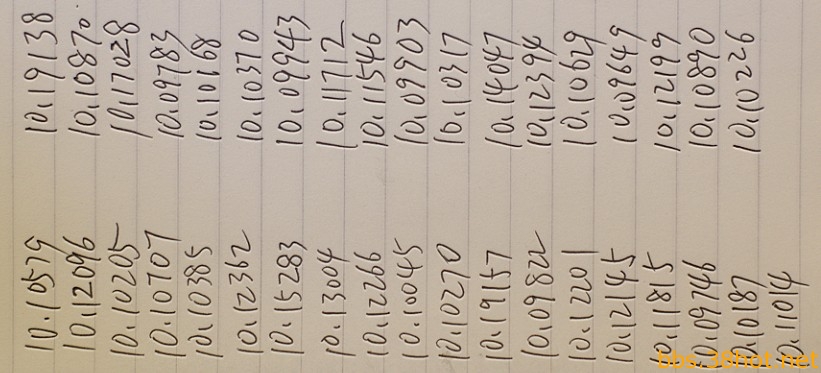 10.10579 10.19138
10.12096 10.10870
10.10205 10.17028
10.10707 10.09783
10.10385 10.10168
10.12362 10.10370
10.15283 10.09943
10.13004 10.11712
10.12266 10.11546
10.10045 10.09903
10.10270 10.10317
10.19157 10.14047
10.09822 10.12394
10.12201 10.10629
10.12145 10.09649
10.11815 10.12199
10.09746 10.10890
10.10187 10.10226
10.1014
bbs.38hot.net